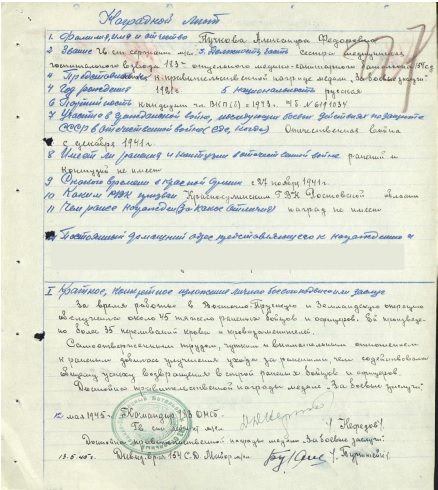 Наградной лист
1. Фамилия, имя и отчество Пучкова Александра Федоровна
2 Звание Гв ст сержант м/с 3. Должность, часть сестра медицинская
госпитального взвода 183 отдельного медико-санитарного
4 Представляется к правительственной награде медаль „За боевые заслуги“
4 Год рождения 5 национальность русская
6 Партийность кандидат чл. ВКП(б) с 1943. КБ №
7 Участие в гражданской войне, последующих боевых действиях по защите
СССР и отечественной войне (где, когда) Отечественная война
с декабря 1941 г.
8 Имеет ли ранения и контузии в отечественной войне ранений и
контузий не имеет
9 С какого времени в Красной армии с 27 ноября 1941 г.
10 Каким РВК призван ГВК Ростовской области
11 Чем ранее награжден (за какие отличия) наград не имеет
12 Постоянный домашний адрес представляемого к награждению и
I Краткое, конкретное изложение личного боевого подвига или заслуг
За время работы в Восточно-Прусскую и Земландскую операцию
обслужила около 45 тяжело раненых бойцов и офицеров. Ей произведе-
но более 35 переливаний крови и кровозаменителей.
Самоотверженным трудом, чутким и внимательным отношением
к раненым добилась улучшения ухода за ранеными чем содействовала
успеху возвращения в строй раненых бойцов и офицеров.
Достойна правительственной награды медаль „За боевые заслуги“.
12 мая 1945 г. Командир 183 ОМСБ
Гв м/с /Нерезов/
Достойна правительственной награды медаль „За боевые заслуги“
13.5.45 г. Див. врач 154 С.Д. Майор м/с